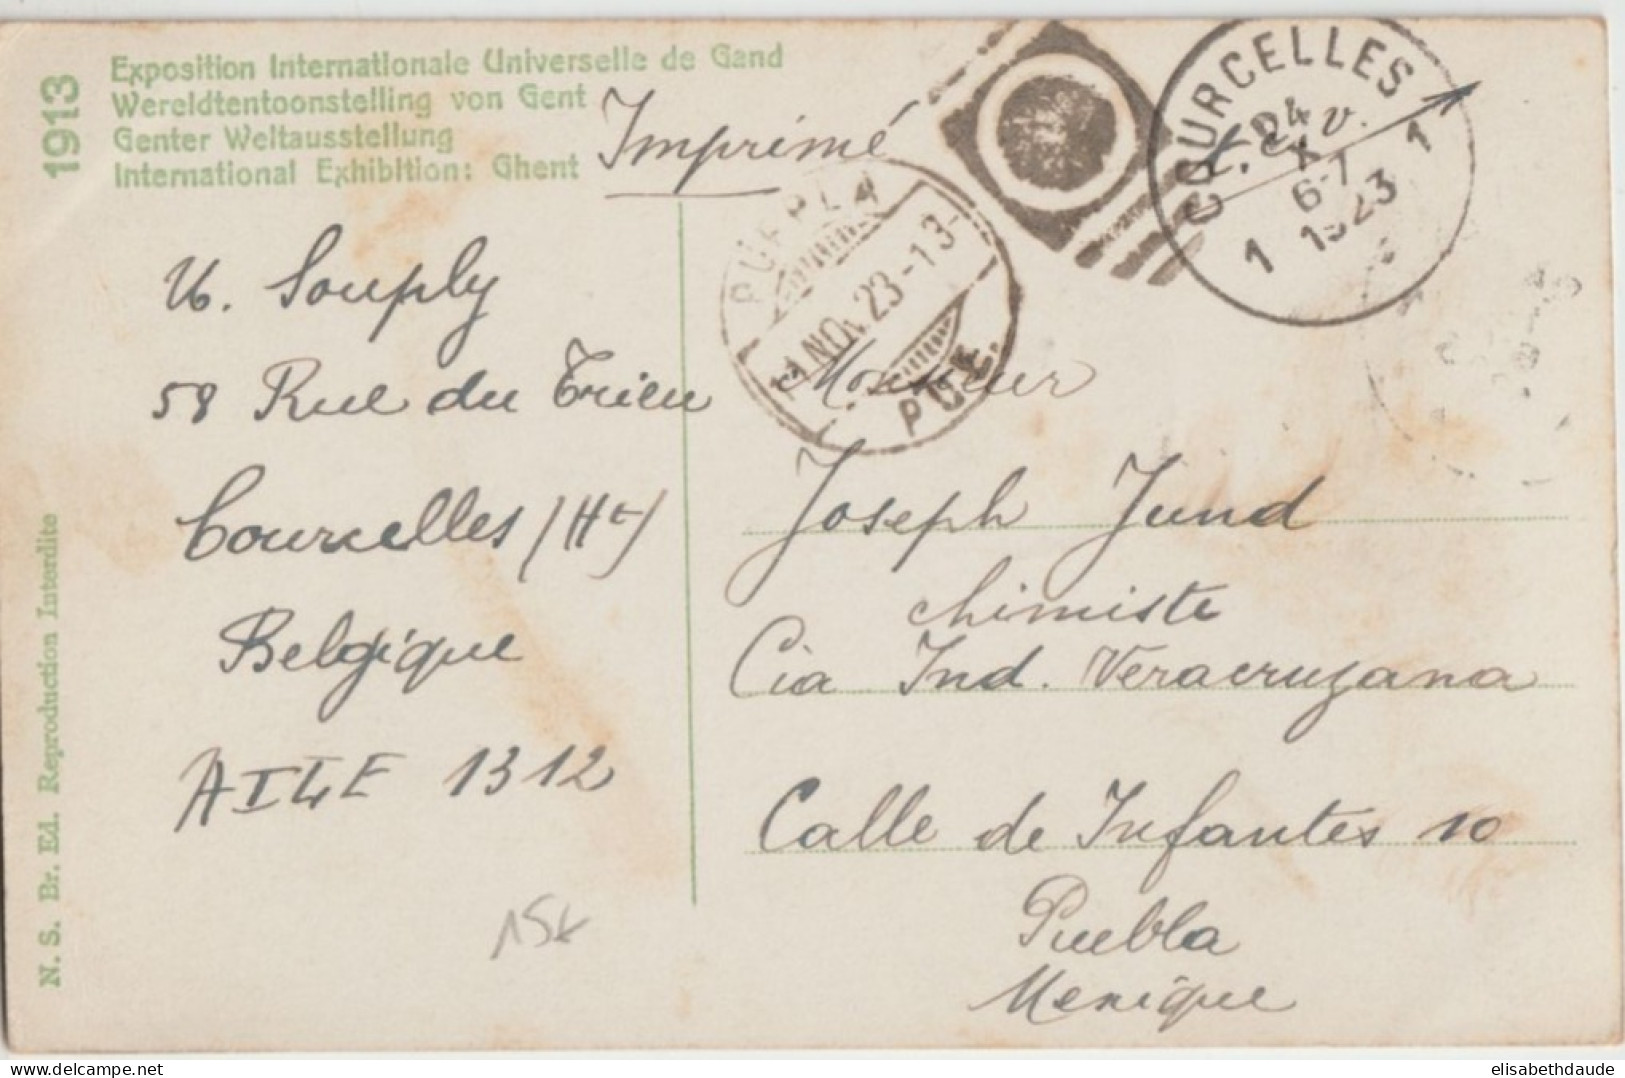 1913
Exposition Internationale Universelle de Gand
Wereldtentoonstelling von Gent
Genter Weltausstellung
International Exhibition: Ghent
Imprimé
COURCELLES
24
X
6-7
1923
1 1
PUEBLA
11 NOV. 23 - 13 -
PUE.
t. s. v.
U. Souply
58 Rue du Trieu
Courcelles (Ht)
Belgique
AILE 1312
15t
Monsieur
Joseph Jund
chimiste
Cia Ind. Veracruzana
Calle de Infantes 10
Puebla
Mexique
N. S. Br. Ed. Reproduction Interdite
elisabethdaude